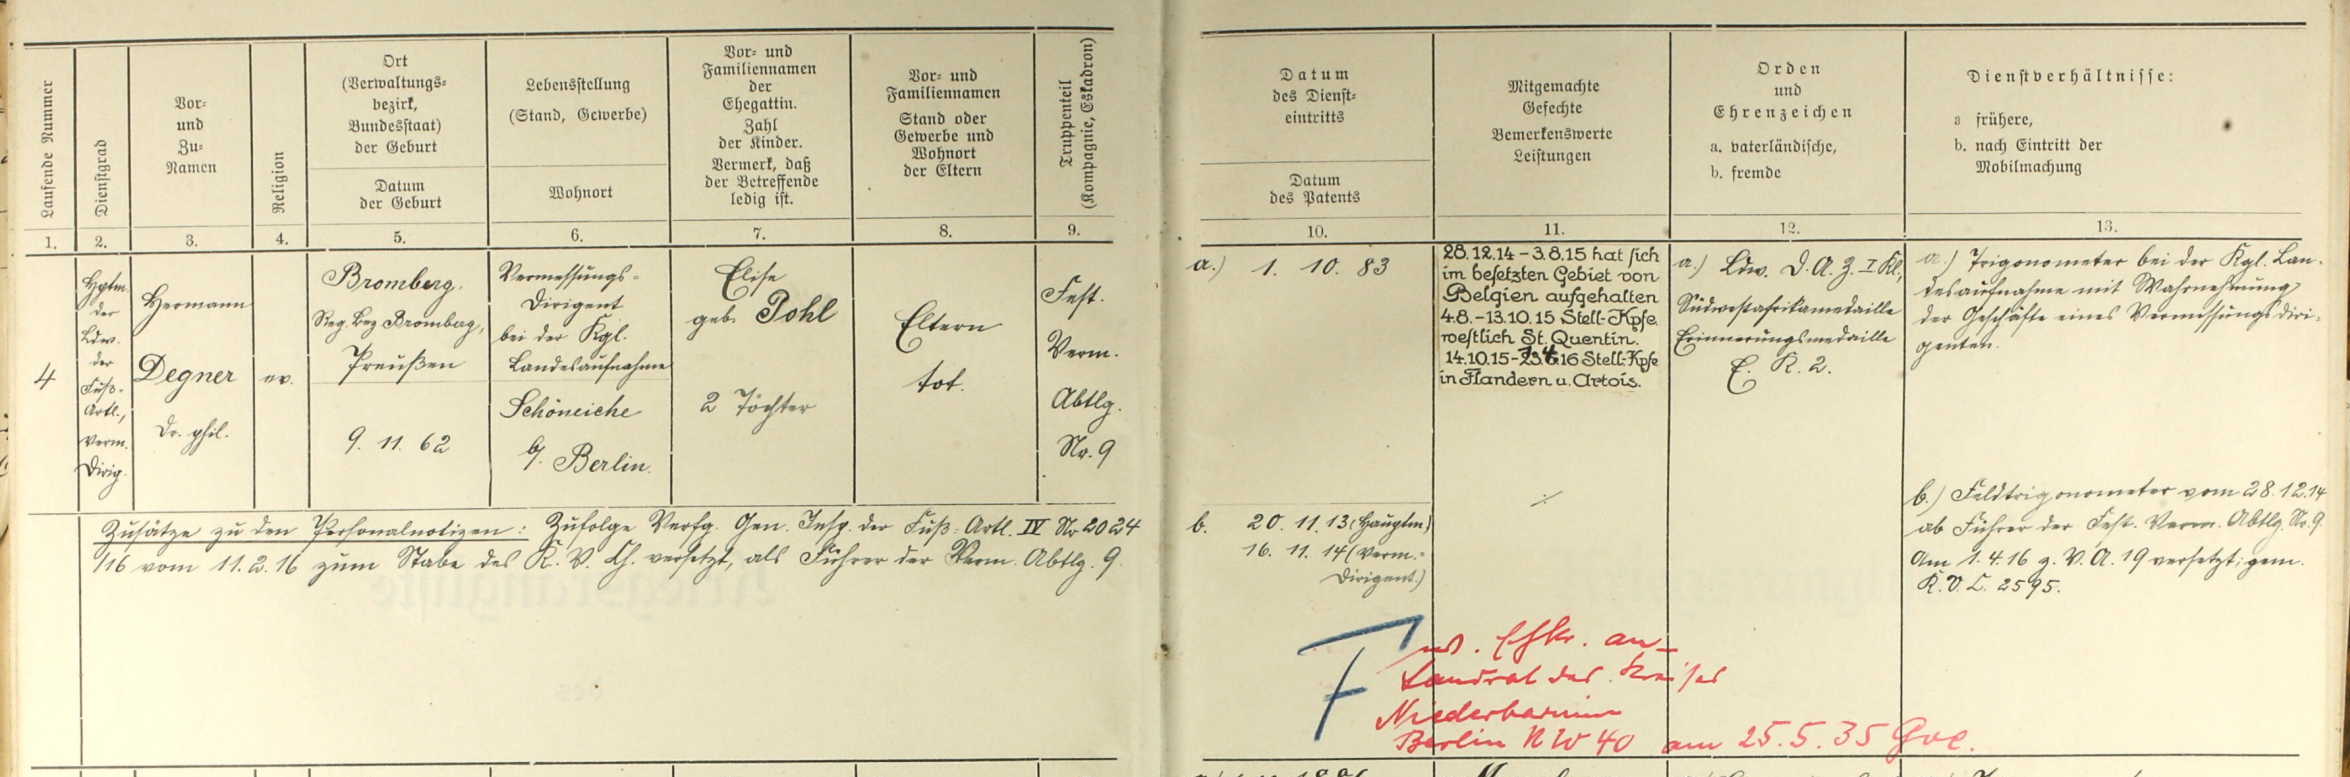 Laufende Nummer
Dienstgrad
Vor-
und
Zu-
Namen
Religion
Ort
(Verwaltungs-
bezirk,
Bundesstaat)
der Geburt
Datum
der Geburt
Lebensstellung
(Stand, Gewerbe)
Wohnort
Vor- und
Familiennamen
der
Ehegattin.
Zahl
der Kinder.
Vermerk, daß
der Betreffende
ledig ist.
Vor- und
Familiennamen
Stand oder
Gewerbe und
Wohnort
der Eltern
Truppenteil
(Kompagnie, Eskadron)
Datum
des Dienst-
eintritts
Datum
des Patents
Mitgemachte
Gefechte
Bemerkenswerte
Leistungen
Orden
und
Ehrenzeichen
a. vaterländische,
b. fremde
Dienstverhältnisse:
a frühere,
b. nach Eintritt der
Mobilmachung
1. 2. 3. 4. 5. 6. 7. 8. 9. 10. 11. 12. 13.
4
Hptm.
der
Ldw.
der
Fuß-
Artl.,
Verm.
Dirig.
Hermann
Degner
Dr. phil.
ev.
Bromberg.
Reg. Bez. Bromberg,
Preußen
9. 11. 62
Vermessungs-
Dirigent
bei der Kgl.
Landesaufnahme
Schöneiche
b/. Berlin.
Elise
geb. Pohl
2 Töchter
Eltern
tot.
Fest.
Verm.
Abtlg.
Nr. 9
a.) 1. 10. 83
28.12.14 - 3.8.15 hat sich
im besetzten Gebiet von
Belgien aufgehalten
4.8. - 13.10.15 Stell.-Kpfe.
westlich St. Quentin.
14.10.15 - 16 Stell.-Kpfe
in Flandern u. Artois.
a.) Ldw. D. A. Z. I Kl,
Südwestafrikamedaille
Erinnerungsmedaille
E. K. 2.
a.) Trigonometer bei der Kgl. Lan-
desaufnahme mit Wahrnehmung
der Geschäfte eines Vermessungsdiri-
genten.
b.) Feldtrigonometer vom 28.12.14
ab Führer der Fest. Verm. Abtlg. Nr. 9
Am 1. 4. 16 z. V. A. 19 versetzt; gem.
K. V. C. 2595.
Zusätze zu den Personalnotizen: Zufolge Verfg. Gen. Insp. der Fuß-Artl. IV Nr 2024
/16 vom 11.2.16 zum Stabe des K. V. Ch. versetzt, als Führer der Verm. Abtlg. 9.
b. 20. 11. 13 (Hauptm)
16. 11. 14 (Verm.-
Dirigent.)
F
an
Landrat des Kreises
Niederbarnim
Berlin NW 40 am 25.5.35